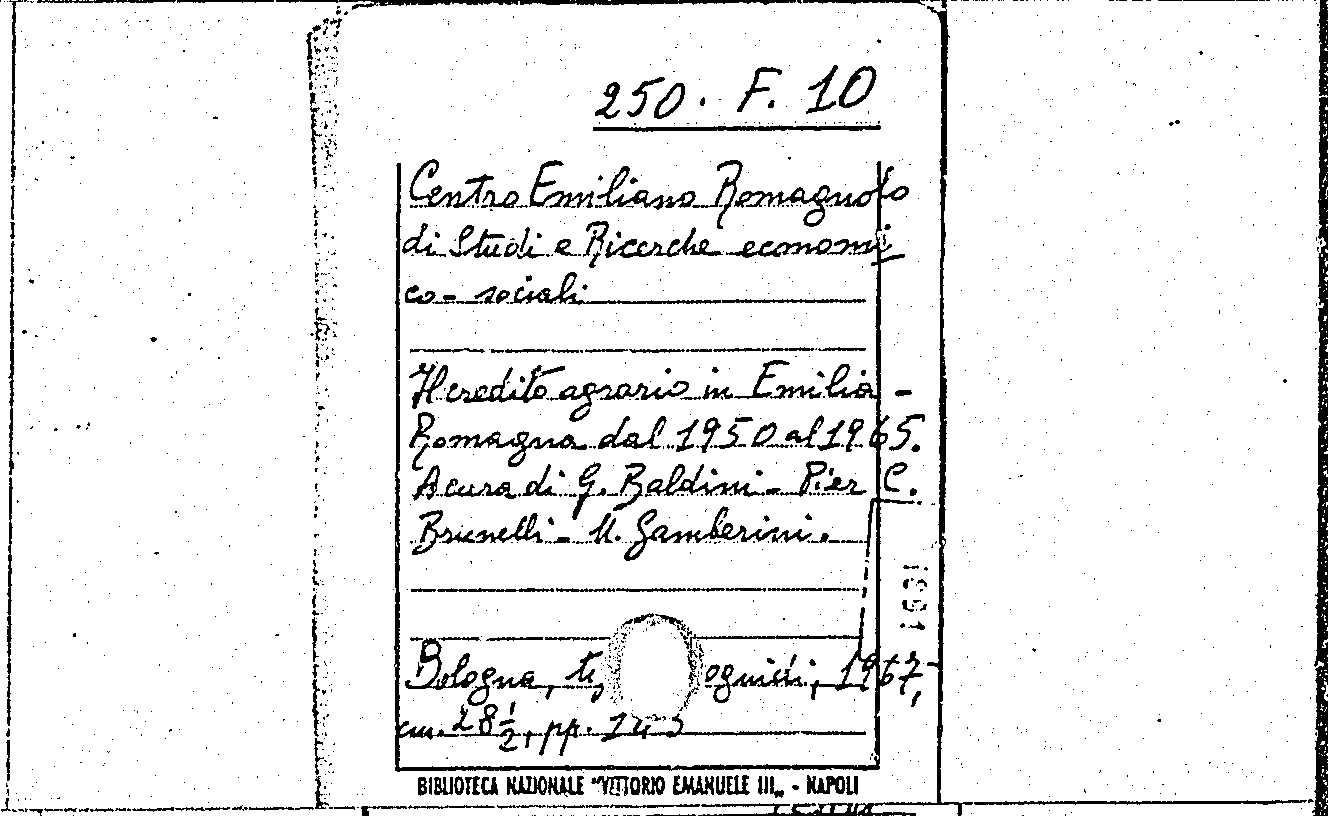 250. F. 10
Centro Emiliano Romagnolo
di Studi e Ricerche economi
co- sociali
Il credito agrario in Emilia -
Romagna dal 1950 al 1965.
A cura di G. Baldini - Pier C.
Brunelli - U. Gamberini.
Bologna, 1967,
cm. 28 1/2, pp.
BIBLIOTECA NAZIONALE "VITTORIO EMANUELE III„ - NAPOLI